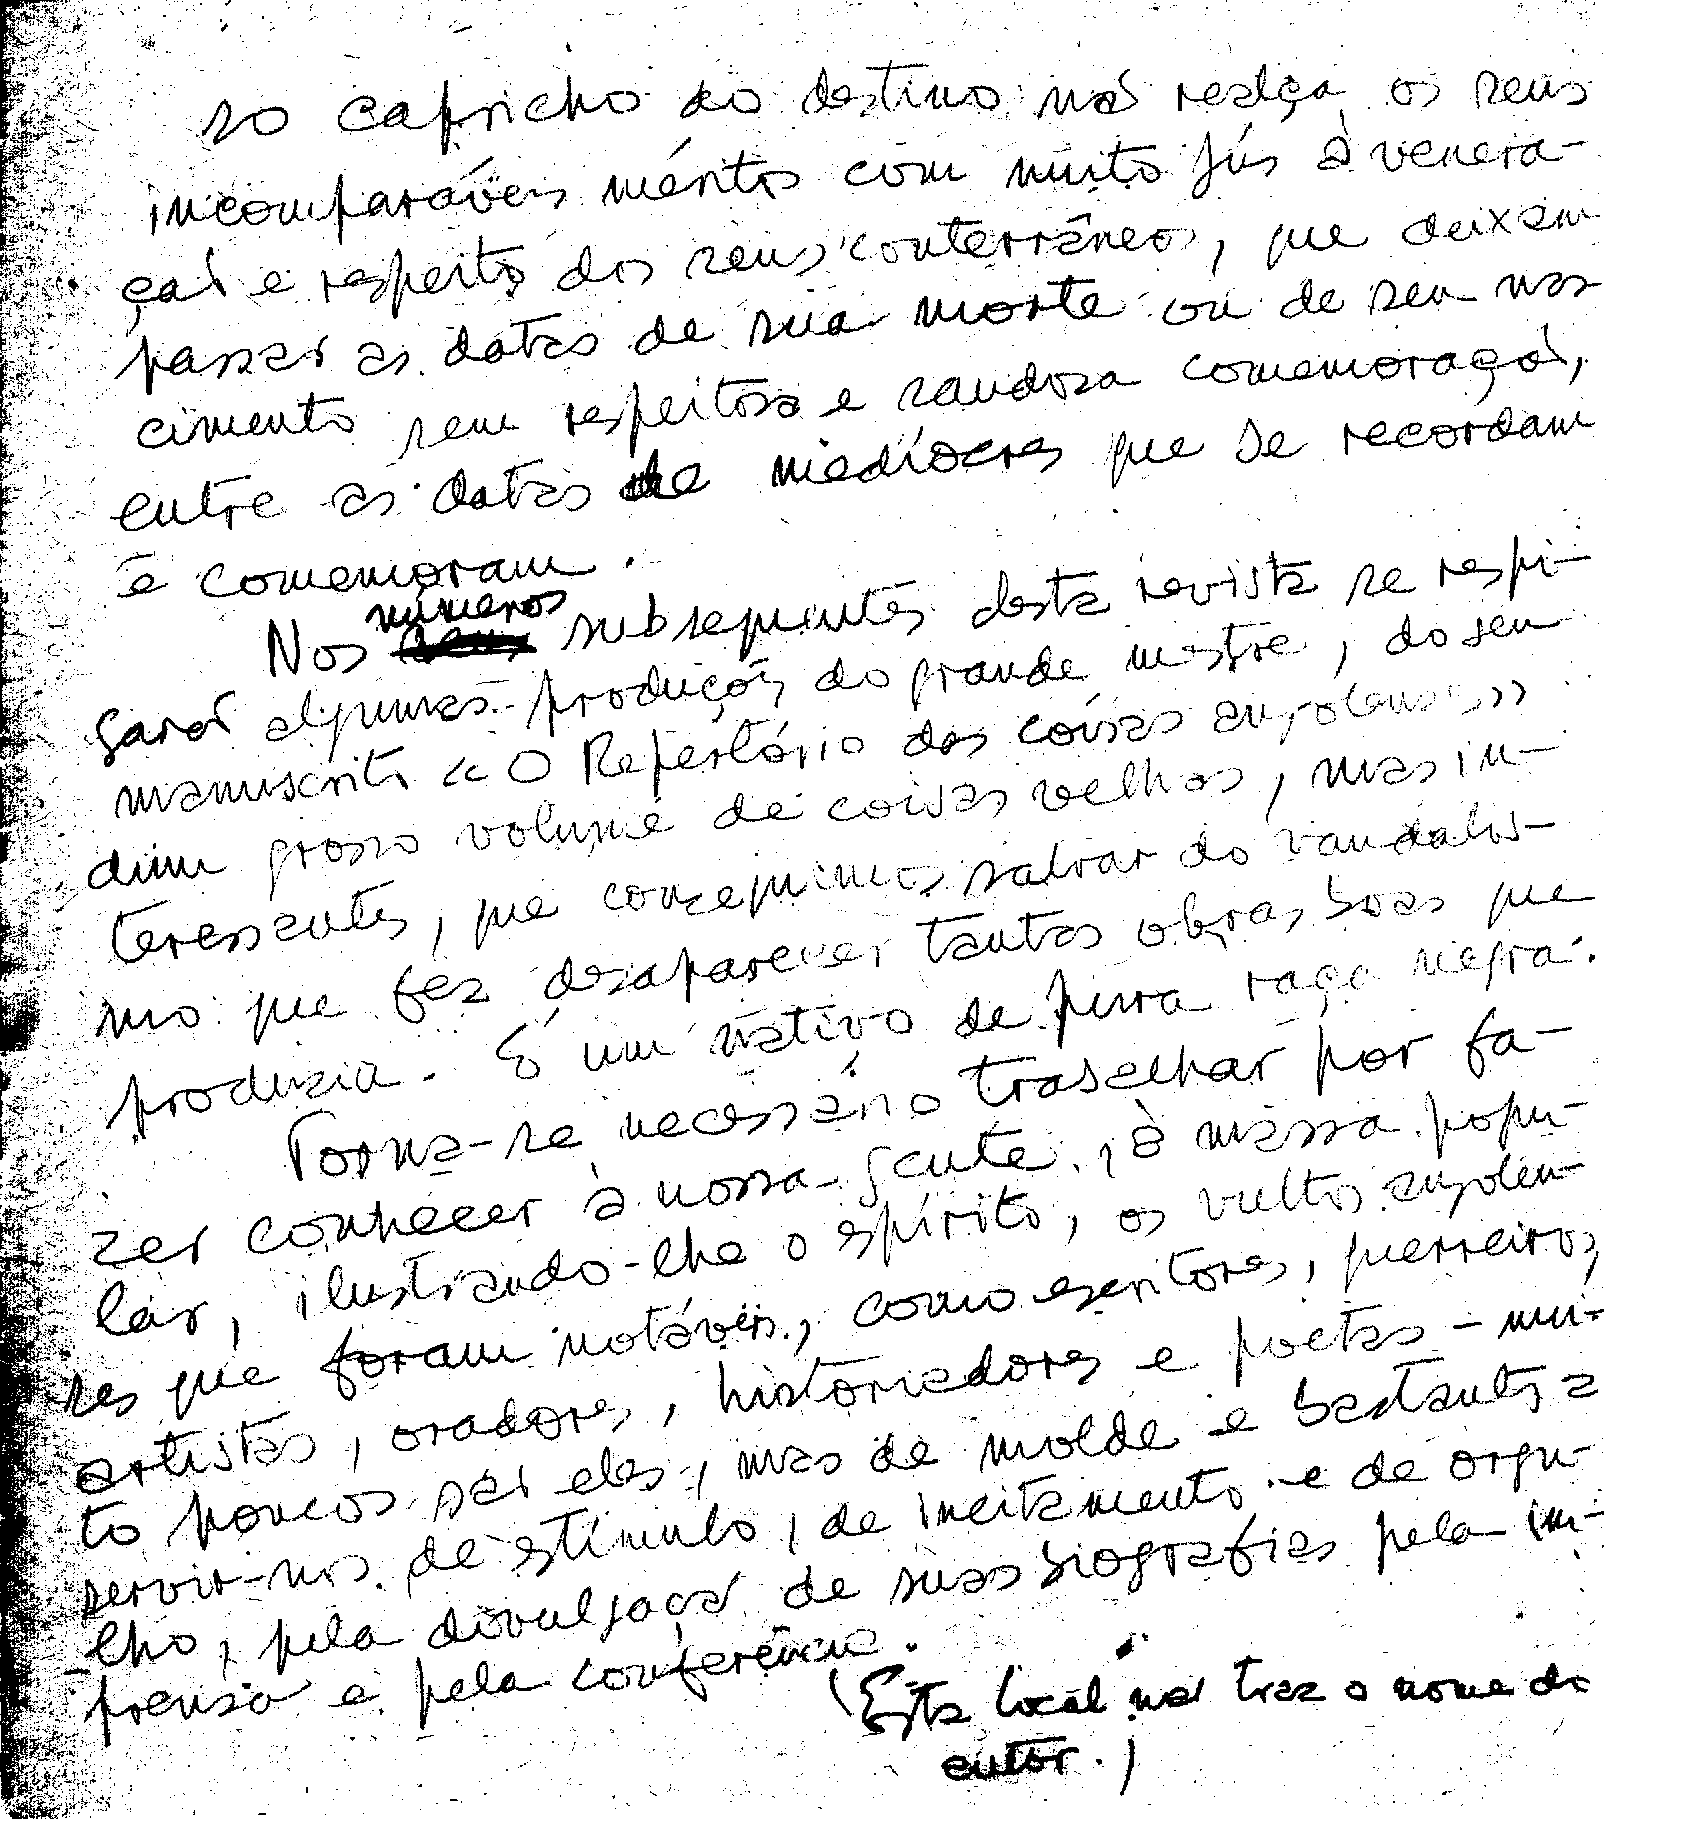 so capricho do destino não realça os seus
incomparáveis méritos com muito jús à venera-
ção e respeito dos seus conterrâneos, que deixam
passar as datas de sua morte ou de seu nas
cimento sem respeitosa e saudosa comemoração,
entre as datas de medíocres que se recordam
e comemoram.
Nos números subsequentes desta revista se respi-
gará algumas produções do grande mestre, do seu
manuscrito «O Repertório das coisas angolenses»
dum grosso volume de coisas velhas, mas in-
teressantes, que conseguimos salvar do vandalis-
mo que fez desaparecer tantas obras boas que
produzia. É um nativo de pura raça negra.
Torna-se necessário trabalhar por fa-
zer conhecer à nossa gente, à massa popu-
lar, ilustrando-lhe o espírito, os vultos angolen-
ses que foram notáveis, como escritores, guerreiros,
artistas, oradores, historiadores e poetas - mui-
to poucos são eles, mas de molde e bastantes a
servir-nos de estímulo, de incitamento e de orgu-
lho, pela divulgação de suas biografias pela im-
prensa e pela conferência.
(Esta local não traz o nome do
autor.)